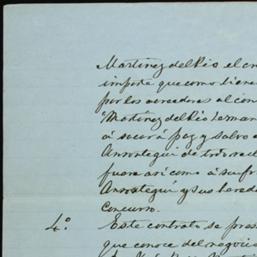 Martinez del Rio el cr
importe que como biene
por los acreedores al con
"Martinez del Rio herman
á sacar á paz y salvo á
Ansostegui de todo recl
fuera así como á su fr
Ansostegui y sus hered
concurso.
4.° Este contrato se pres
que conoce del negocio